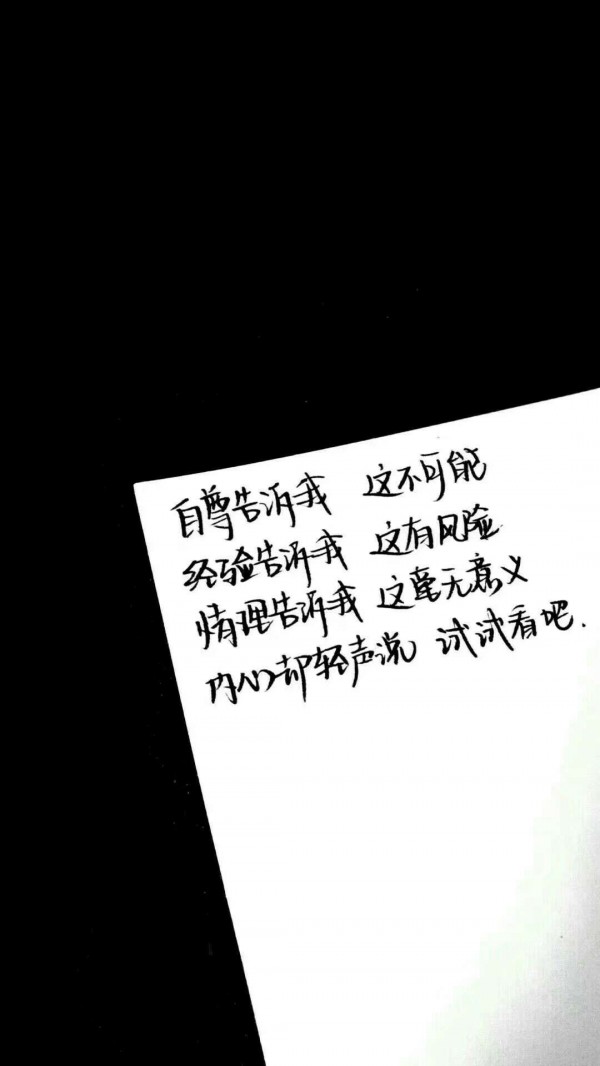 自尊告诉我 这不可能
经验告诉我 这有风险
情理告诉我 这毫无意义
内心却轻声说 试试看吧.